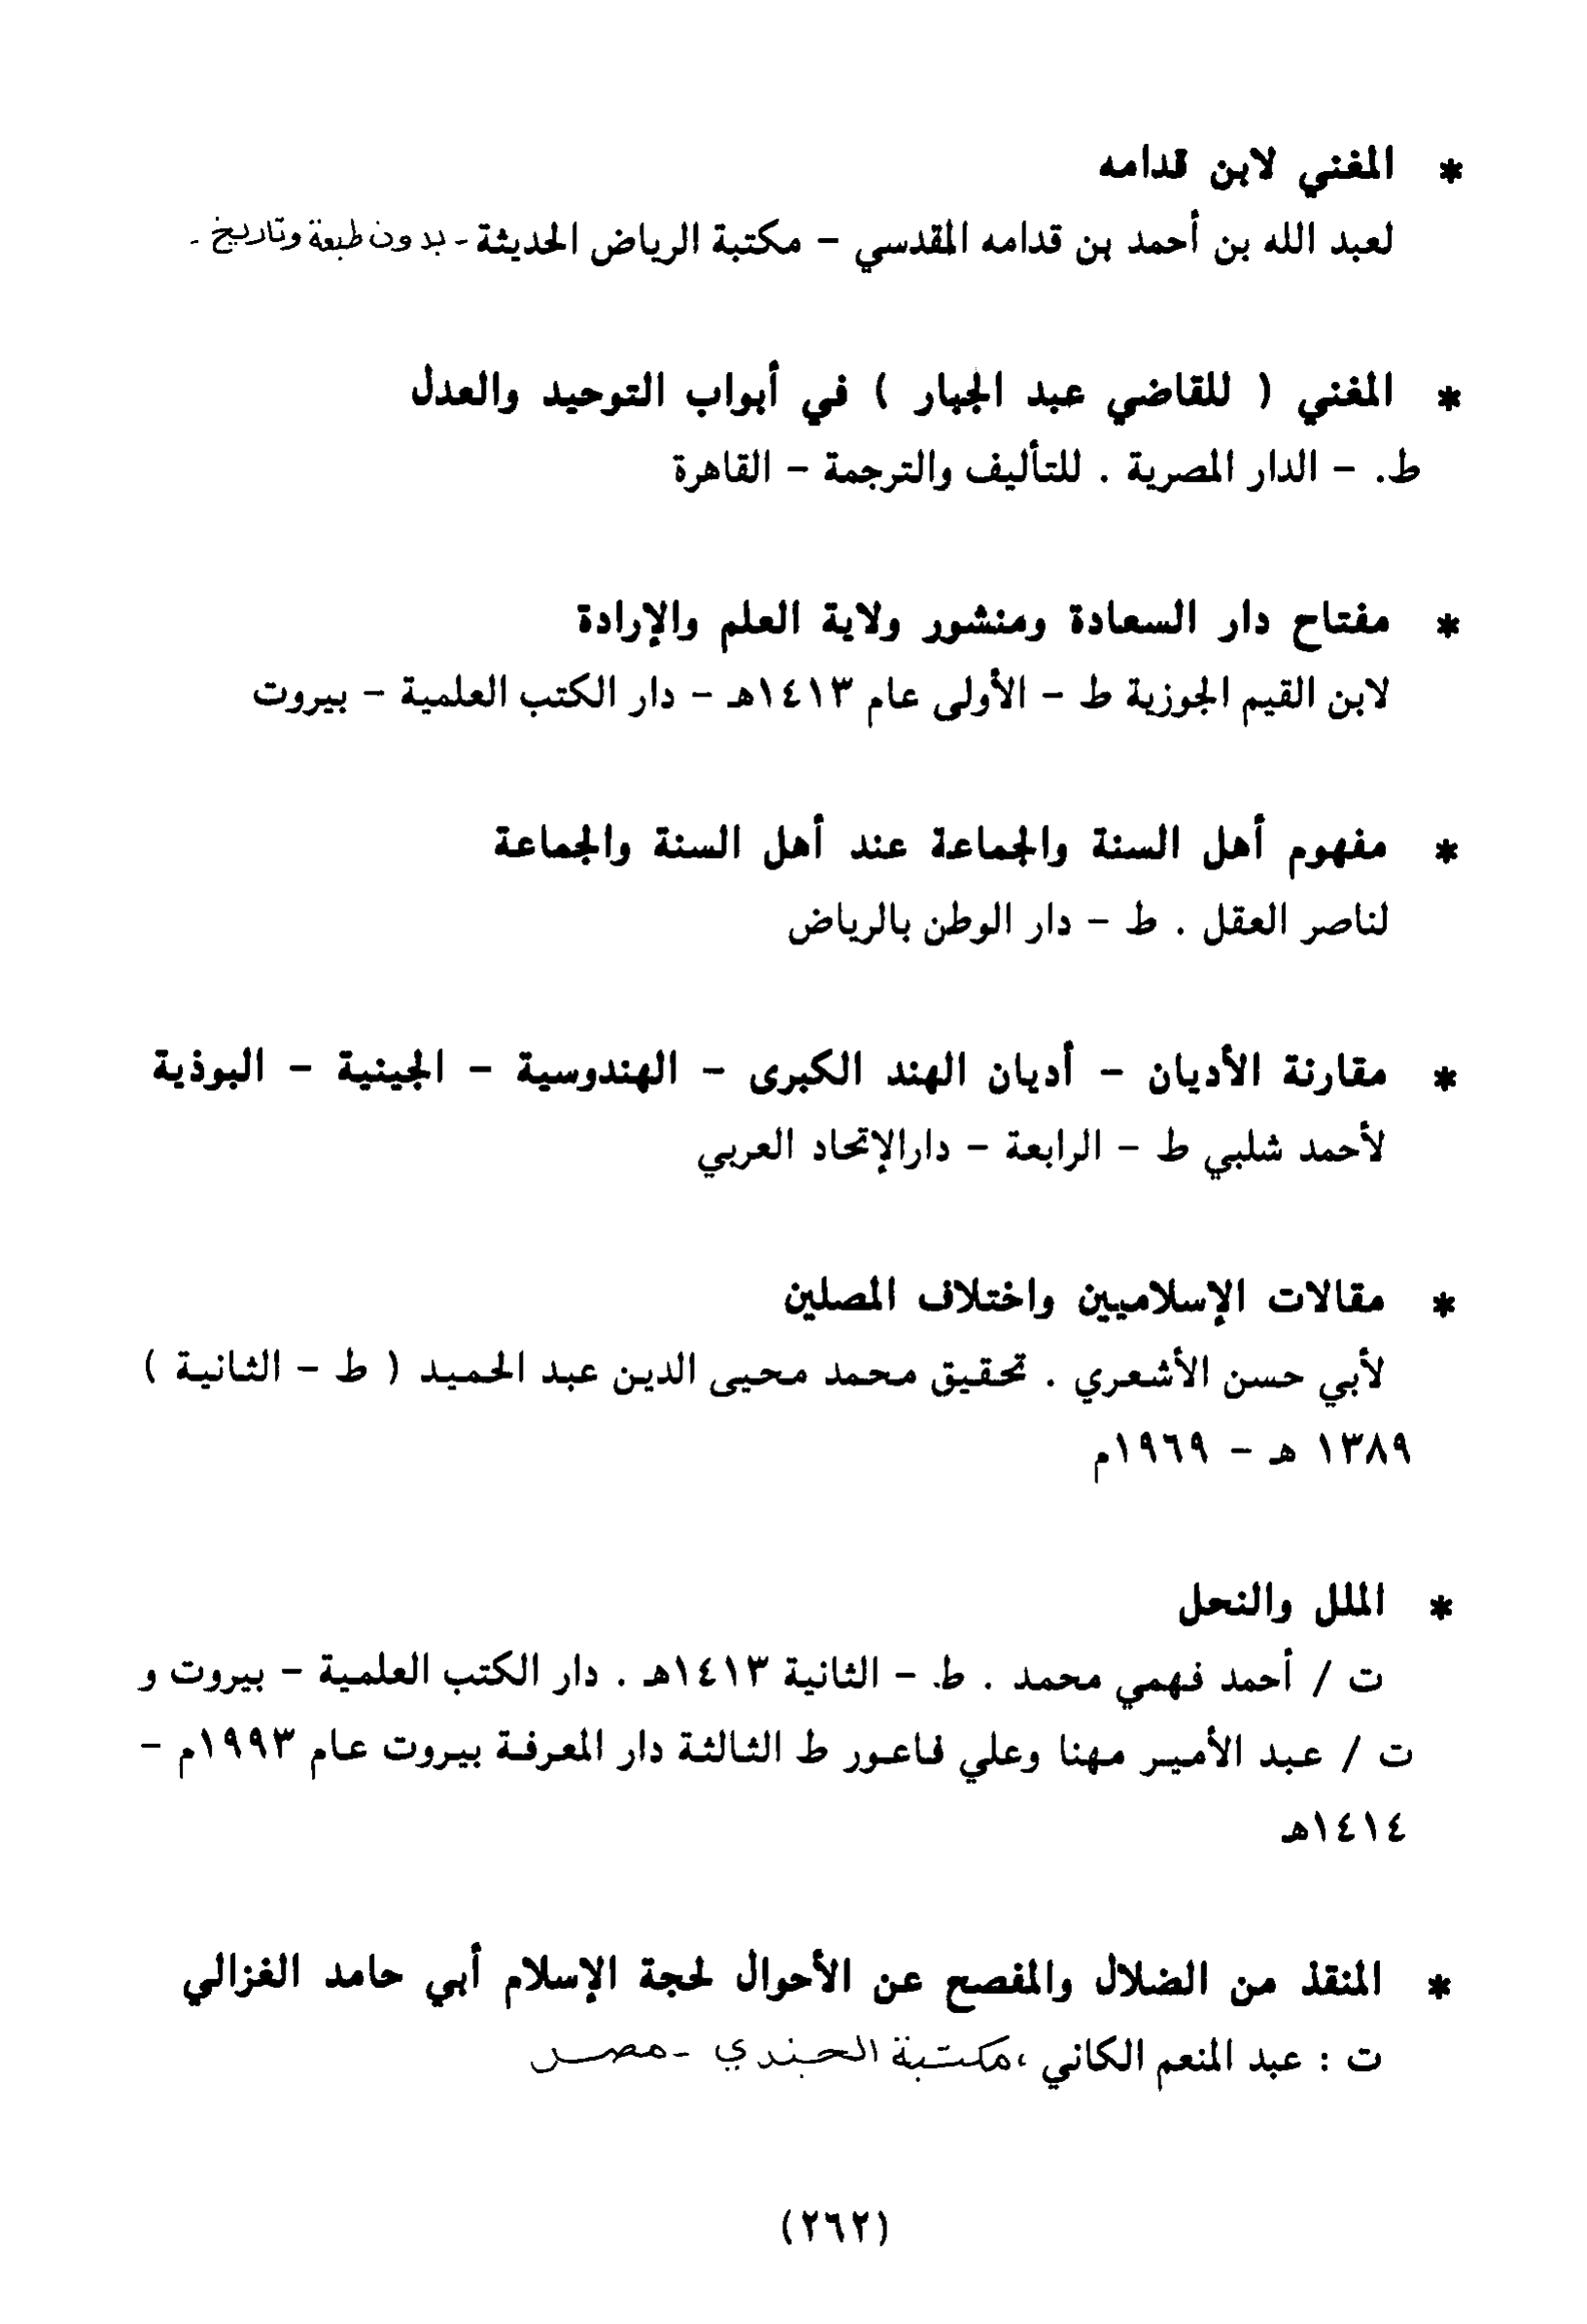 * المغني لابن قدامه
لعبد الله بن أحمد بن قدامه المقدسي – مكتبة الرياض الحديثة - بدون طبعة وتاريخ -
* المغني ( للقاضي عبد الجبار ) في أبواب التوحيد والعدل
ط. – الدار المصرية . للتأليف والترجمة – القاهرة
* مفتاح دار السعادة ومنشور ولاية العلم والإرادة
لابن القيم الجوزية ط – الأولى عام ١٤١٣هـ – دار الكتب العلمية – بيروت
* مفهوم أهل السنة والجماعة عند أهل السنة والجماعة
لناصر العقل . ط – دار الوطن بالرياض
* مقارنة الأديان – أديان الهند الكبرى – الهندوسية – الجينية – البوذية
لأحمد شلبي ط – الرابعة – دارالإتحاد العربي
* مقالات الإسلاميين واختلاف المصلين
لأبي حسن الأشعري . تحقيق محمد محيى الدين عبد الحميد ( ط – الثانية )
١٣٨٩ هـ – ١٩٦٩م
* الملل والنحل
ت / أحمد فهمي محمد . ط. – الثانية ١٤١٣هـ . دار الكتب العلمية – بيروت و
ت / عبد الأمير مهنا وعلي فاعور ط الثالثة دار المعرفة بيروت عام ١٩٩٣م –
١٤١٤هـ
* المنقذ من الضلال والمفصح عن الأحوال لحجة الإسلام أبي حامد الغزالي
ت : عبد المنعم الكاني ، مكتبة الجندي - مصر
(٢٦٢)